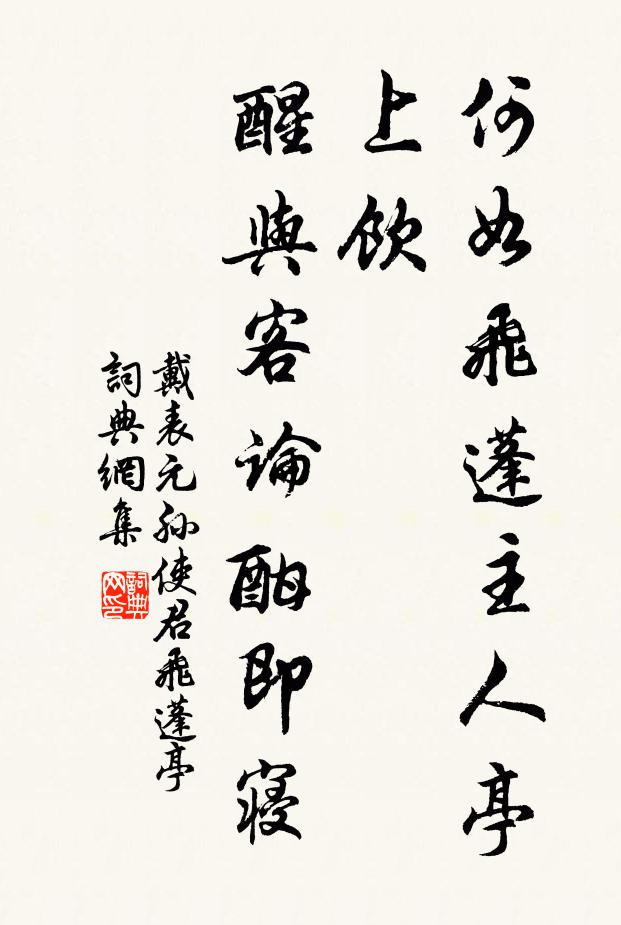 何如飛蓬主人亭
上飲
醒與客論酣即寢
戴表元孫使君飛蓬亭
詞典網集
詞典网印